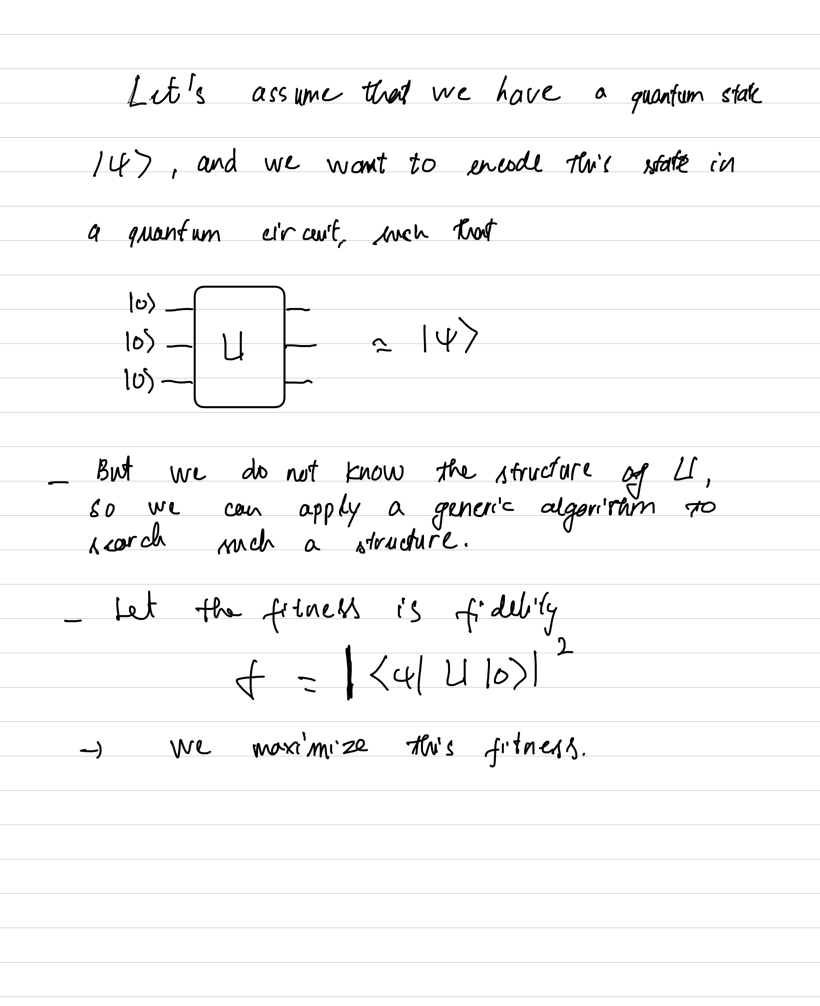 Let's assume that we have a quantum state
|ψ⟩, and we want to encode this state in
a quantum circuit, such that
|0⟩
|0⟩ U ≃ |ψ⟩
|0⟩
- But we do not know the structure of U,
so we can apply a generic algorithm to
search such a structure.
- Let the fitness is fidelity
f = |⟨ψ| U |0⟩|²
→ we maximize this fitness.